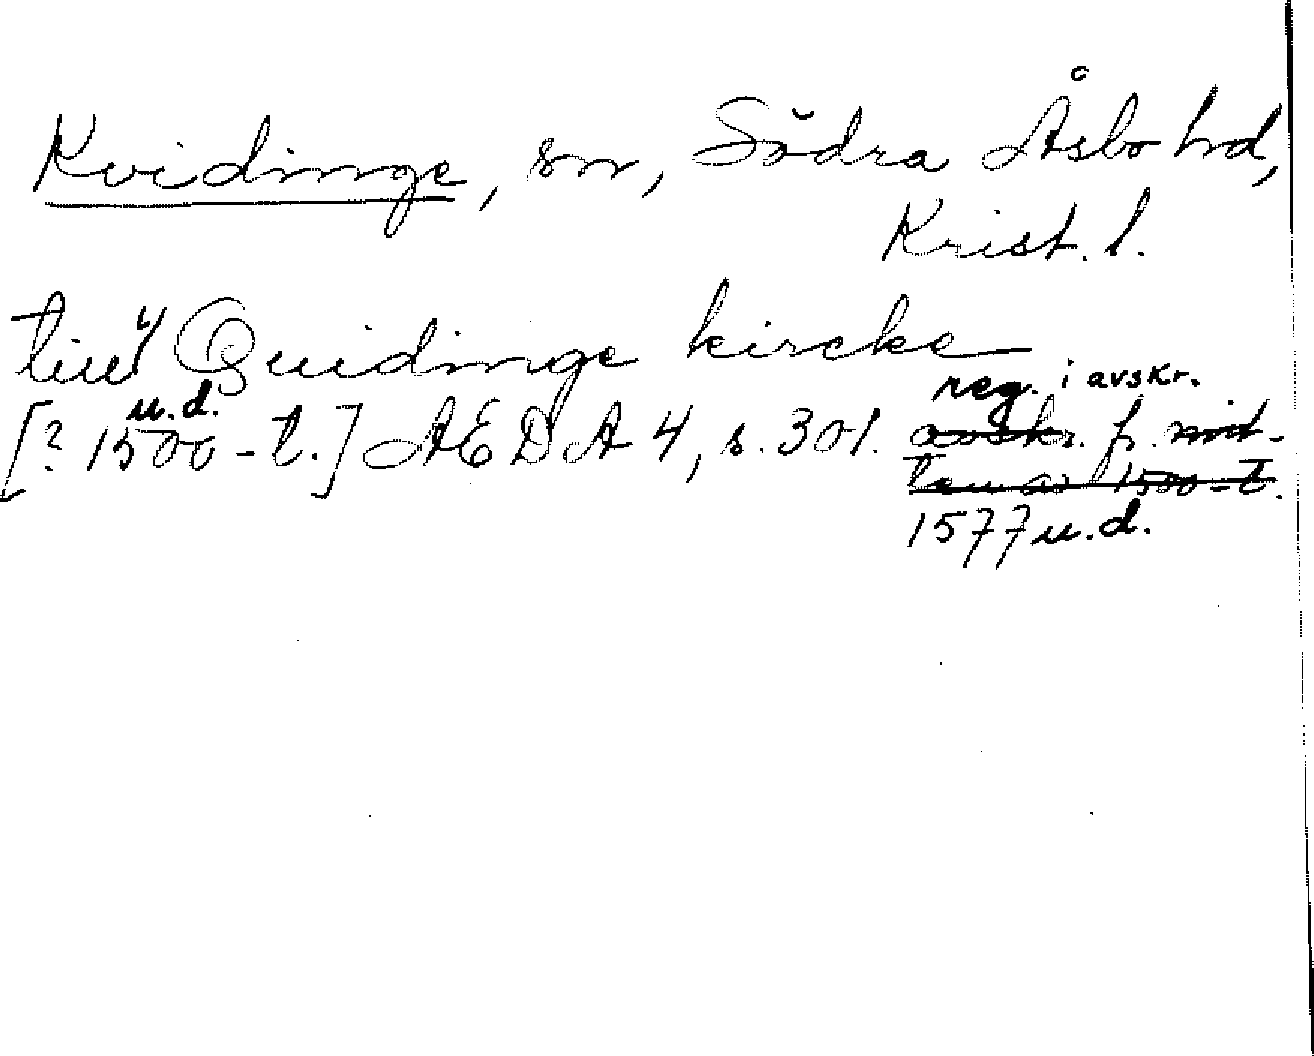 Kvidinge, sn, Södra Åsbo hd,
Krist. l.
till Quidinge kircke
u.d.
reg. i avskr.
[? 1500-t.] AEDA 4, s. 301. avskr. fr. mit-
ten av 1500-t.
1577 u.d.